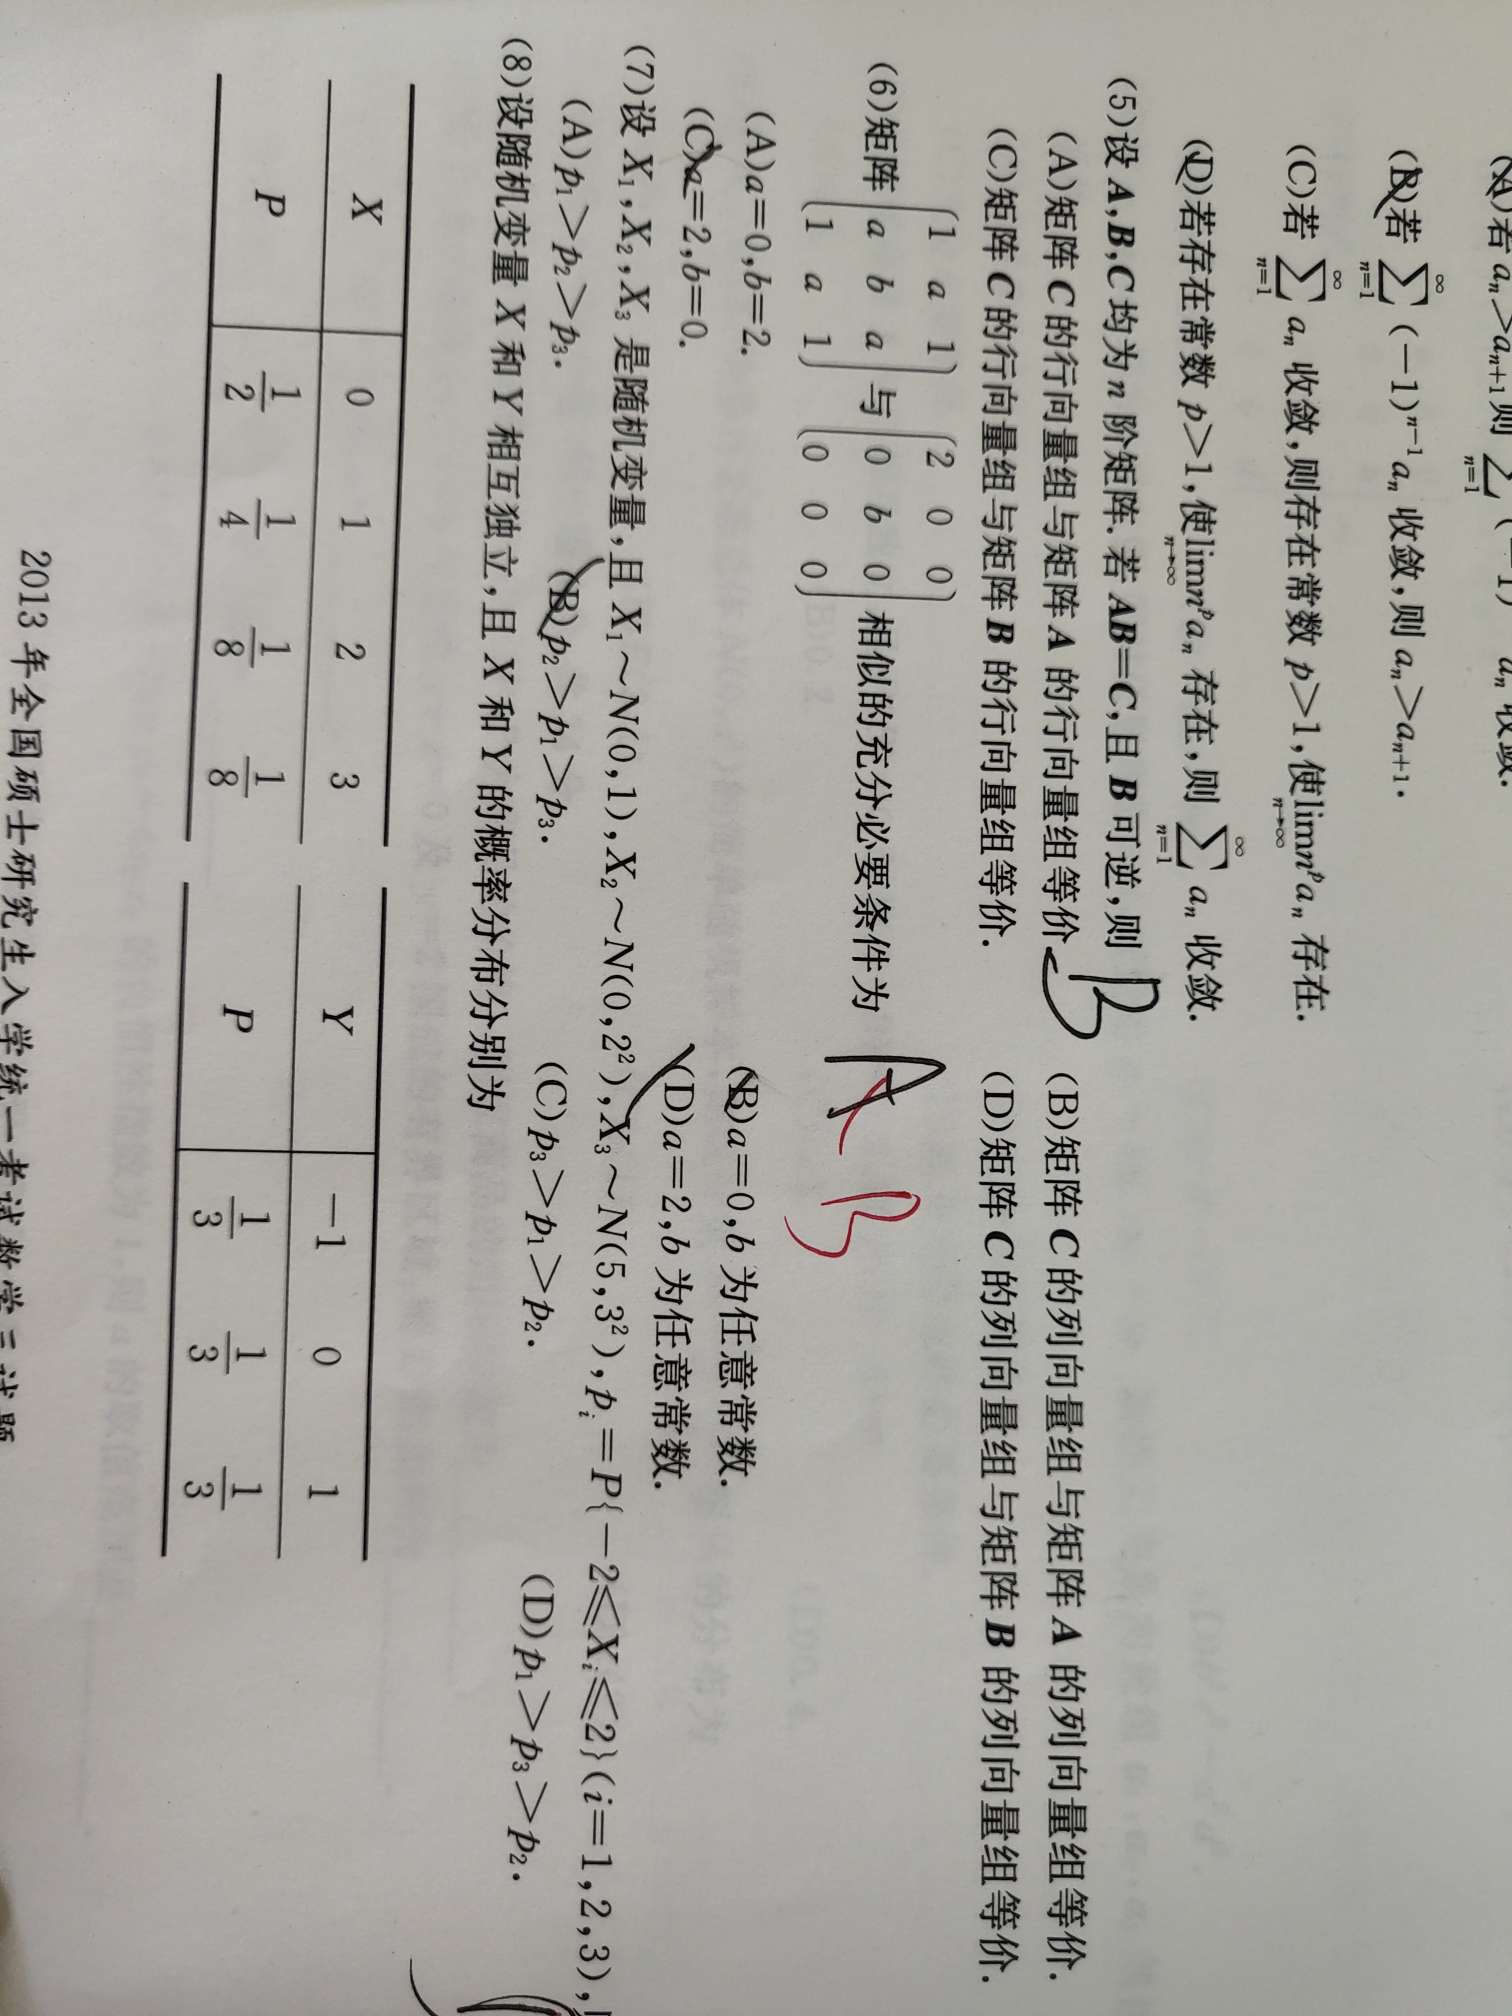 (A)若 aₙ>aₙ₊₁则 ∑ₙ₌₁ (-1) aₙ 收敛.
(B)若 ∑ₙ₌₁^∞ (-1)ⁿ⁻¹aₙ 收敛,则 aₙ>aₙ₊₁.
(C)若 ∑ₙ₌₁^∞ aₙ 收敛,则存在常数 p>1,使 lim_{n→∞} nᵖaₙ 存在.
(D)若存在常数 p>1,使 lim_{n→∞} nᵖaₙ 存在,则 ∑ₙ₌₁^∞ aₙ 收敛.
(5)设 A,B,C 均为 n 阶矩阵.若 AB=C,且 B 可逆,则 B
(A)矩阵 C 的行向量组与矩阵 A 的行向量组等价. (B)矩阵 C 的列向量组与矩阵 A 的列向量组等价.
(C)矩阵 C 的行向量组与矩阵 B 的行向量组等价. (D)矩阵 C 的列向量组与矩阵 B 的列向量组等价.
1 a 1 2 0 0
(6)矩阵 a b a 与 0 b 0 相似的充分必要条件为 A B
1 a 1 0 0 0
(A)a=0,b=2. (B)a=0,b 为任意常数.
(C)a=2,b=0. (D)a=2,b 为任意常数.
(7)设 X₁,X₂,X₃ 是随机变量,且 X₁~N(0,1),X₂~N(0,2²),X₃~N(5,3²),pᵢ=P{-2≤Xᵢ≤2}(i=1,2,3),
(A)p₁>p₂>p₃. (B)p₂>p₁>p₃. (C)p₃>p₁>p₂. (D)p₁>p₃>p₂.
(8)设随机变量 X 和 Y 相互独立,且 X 和 Y 的概率分布分别为
X 0 1 2 3 Y -1 0 1
P 1/2 1/4 1/8 1/8 P 1/3 1/3 1/3
2013 年全国硕士研究生入学统一考试数学三试题